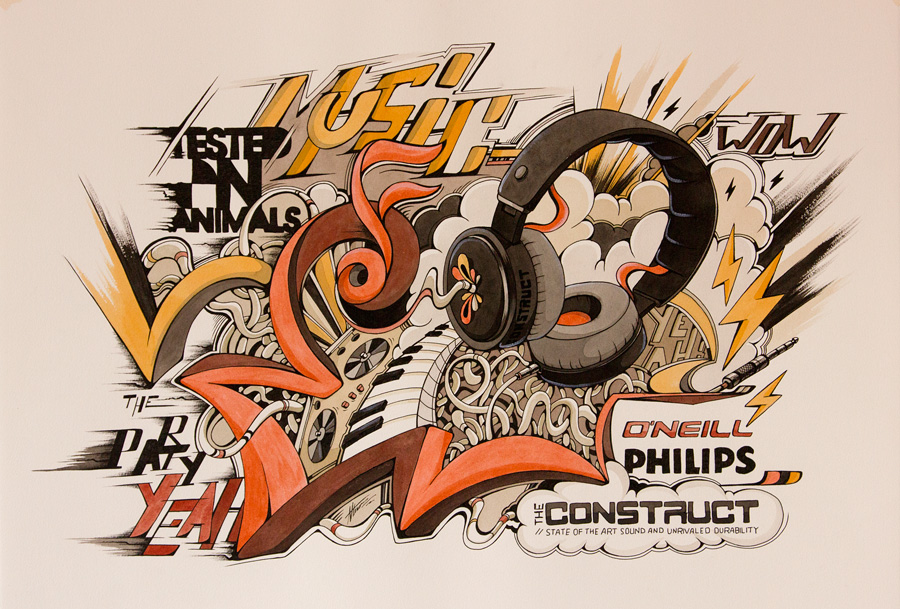 MUSIC
TESTED
ON
ANIMALS
WOW
CONSTRUCT
YEAH
THE
PARTY
YEAH
O'NEILL
PHILIPS
THE CONSTRUCT
// STATE OF THE ART SOUND AND UNRIVALED DURABILITY